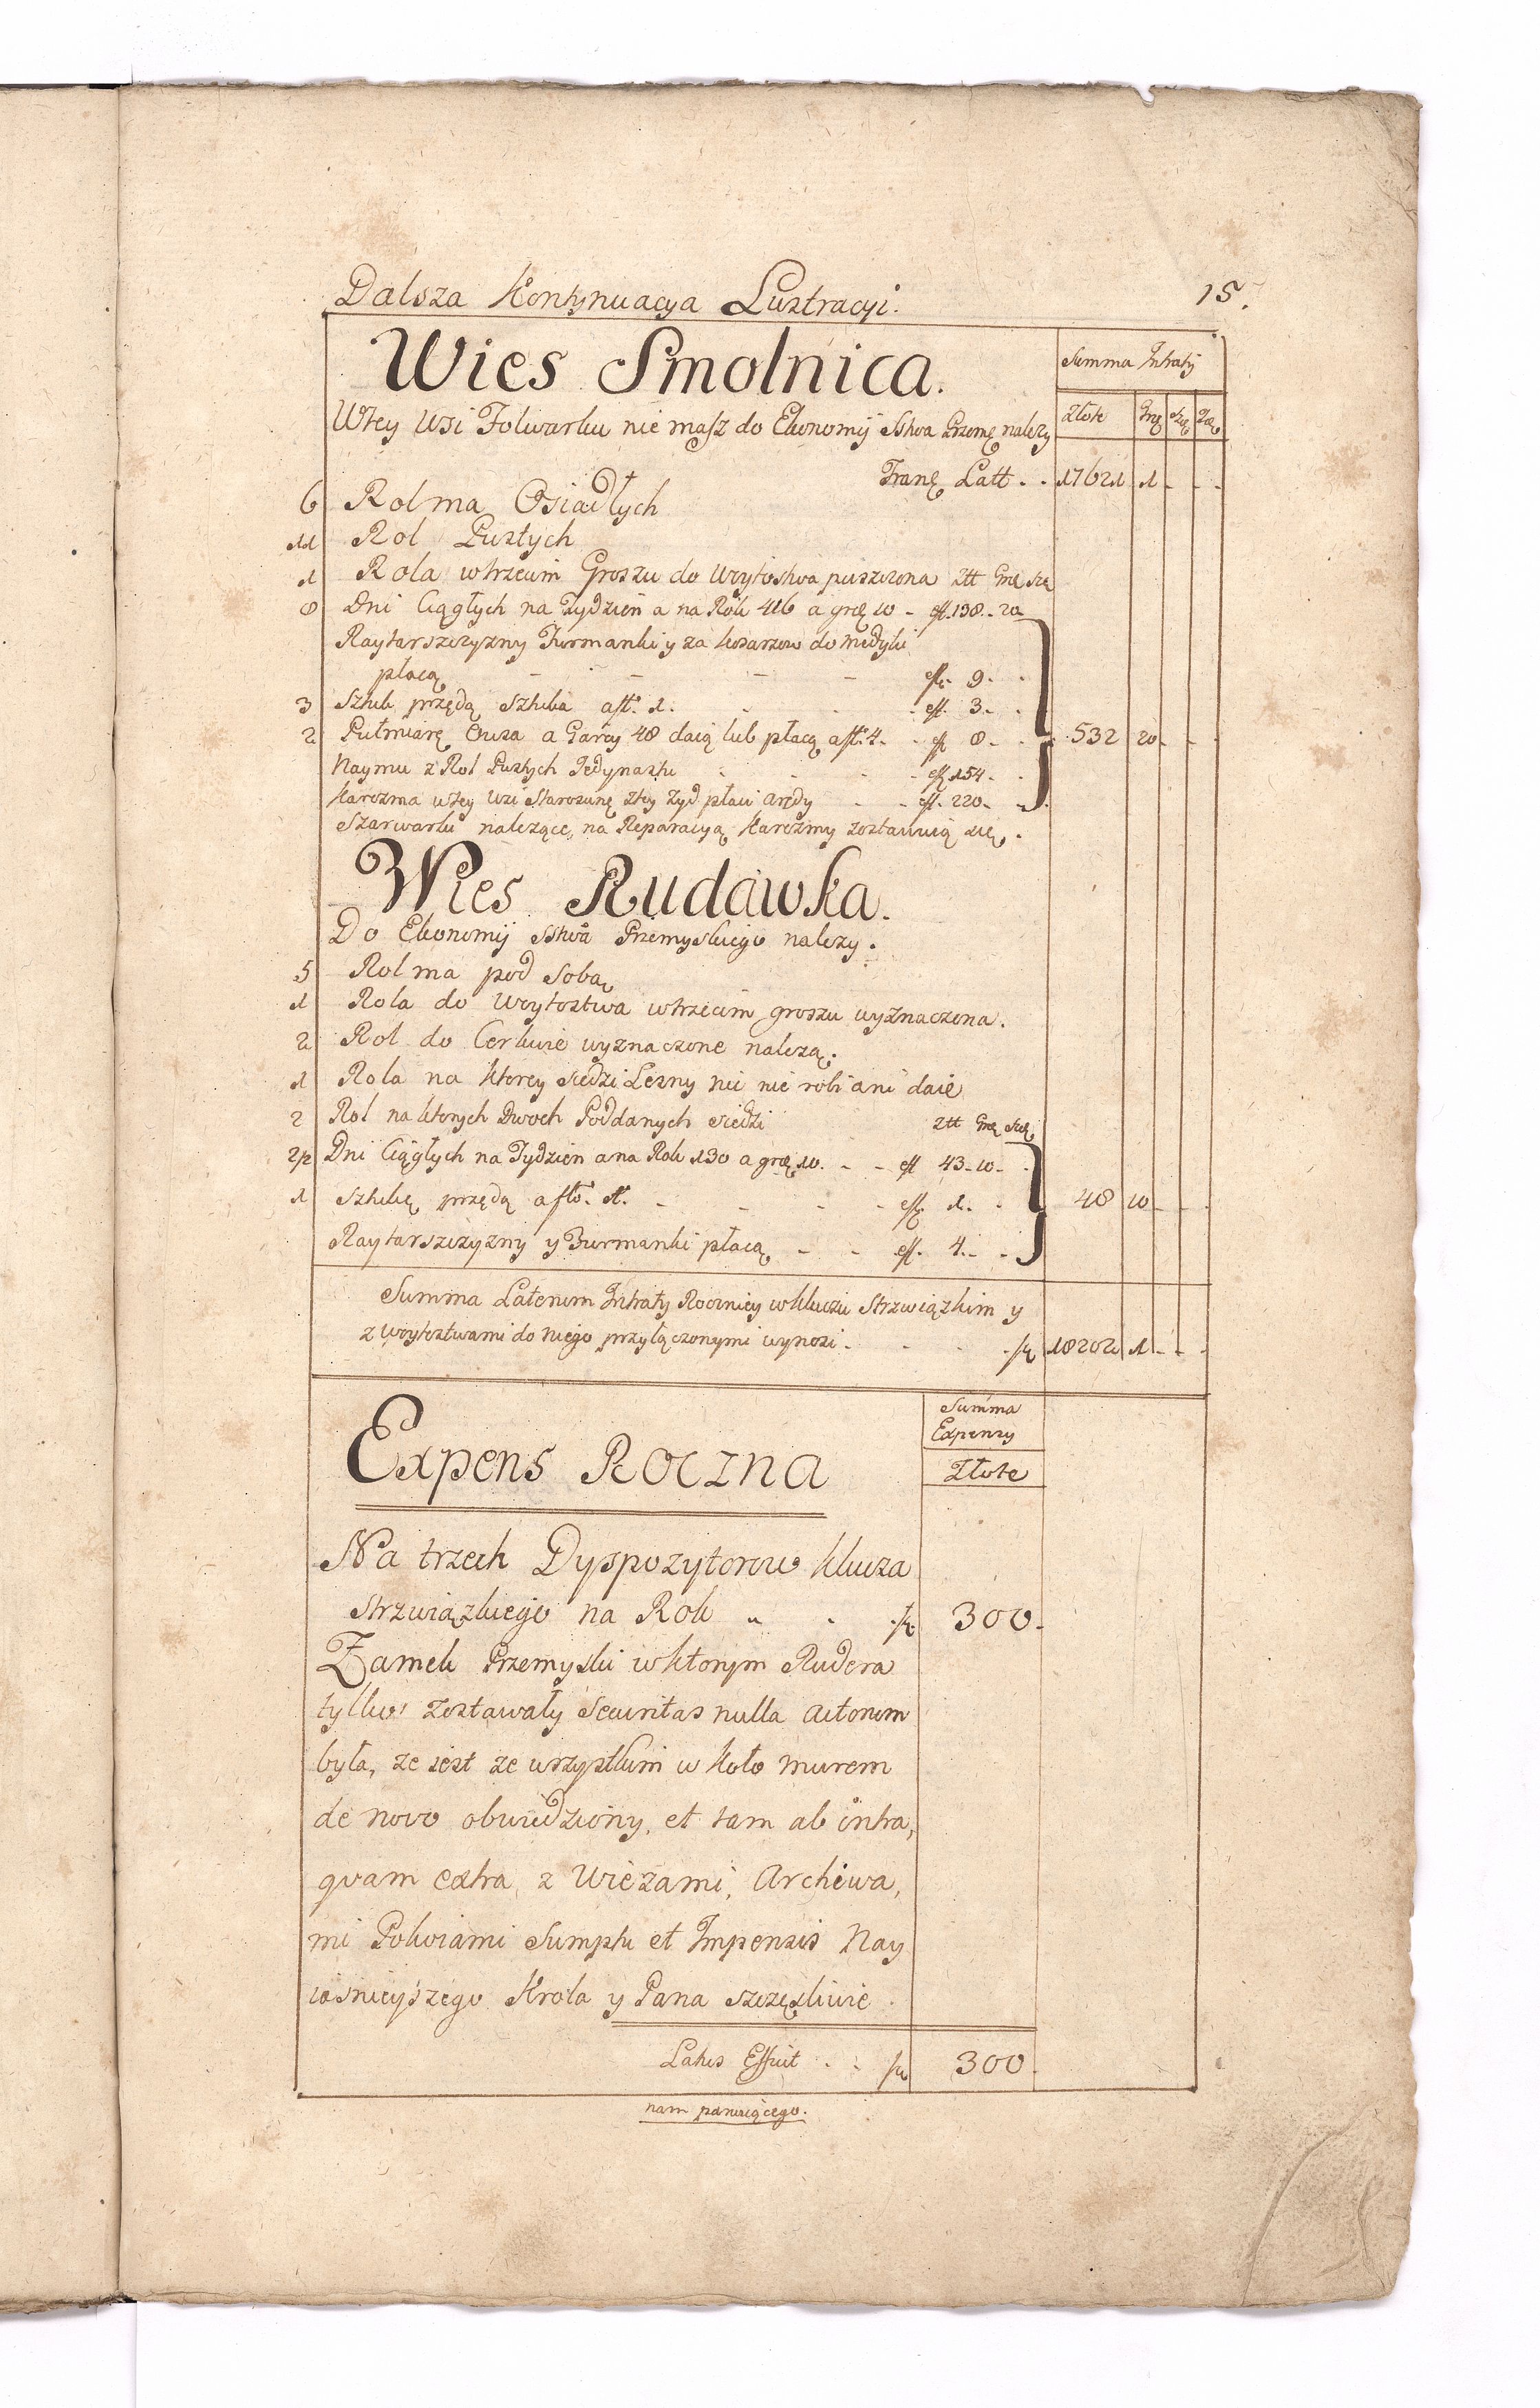 Dalsza Kontynuacya Lustracyi. 15.
Wies Smolnica. Summa Intraty
Wtey Wsi Folwarku nie masz do Ekonomij Sstwa Przemę należy Złote Grę Szę
Tranę Latt . . 17621 1 - - -
6 Rol ma Osiadłych
11 Rol Pustych
1 Rola w trzecim Groszu do Woytostwa puszczona Ztt Grę Szę
8 Dni Ciągłych na Tydzien a na Rok 416 a grę 10 - eff. 138 .. 20
Raytarszczyzny Furmanki y za kosarzow do Medyki
płacą - - - - eff. 9. - .
3 Sztuk przędą Sztuka a ff. 1. - - - eff. 3. - .
2 Pułmiarę Owsa a Garcy 48 daią lub płacą a ff. 4. - eff 8 - . 532 20 - - -
Naymu z Rol Pustych Jedynastu - - - eff 154 - .
Karczma wtey Wsi Starozunę ztey Zyd płaci Arędy - - eff. 220 - -
Szarwarku nalezące, na Reparacyą Karczmy zostawuią się .
Wies Rudawka.
Do Ekonomij Sstwa Przemyskiego nalezy .
5 Rol ma pod Sobą
1 Rola do Woytostwa w trzecim groszu wyznaczona.
2 Rol do Cerkwie wyznaczone nalezą.
1 Rola na ktorey siedzi Lesny nic nie robi ani daie
2 Rol na ktorych Dwoch Poddanych siedzi Ztt Grę Szę
2/2 Dni Ciągłych na Tydzien a na Rok 130 a grę 10. - - eff 43 - 10 - .
1 Sztukę przędą a ffo. 1. - - - - eff. 1. - . 48 10 - - -
Raytarszczyzny y Furmanki płacą - - eff. 4. - - .
Summa Laterum Intraty Roczniey w Kluczu Strzwiązkim y
z Woytostwami do niego przyłączonymi wynosi . - - - 18202 1 - - -
Summa
Expensy
Expens Roczna Złote
Na trzech Dyspozytorow Klucza
Strzwiązkiego na Rok „ - 300.
Zamek Przemyski w ktorym Rudera
tylko zostawały Securitas nulla Actorum
była, ze iest ze wszystkim w koło murem
de novo obwiedziony, et tam ab intra,
quam extra z Wiezami, Archiwa,
mi Pokoiami Sumptu et Impensis Nay
iasnieyszego Krola y Pana szczęsliwie .
Latus Efficit . - 300.
nam panuiącego.